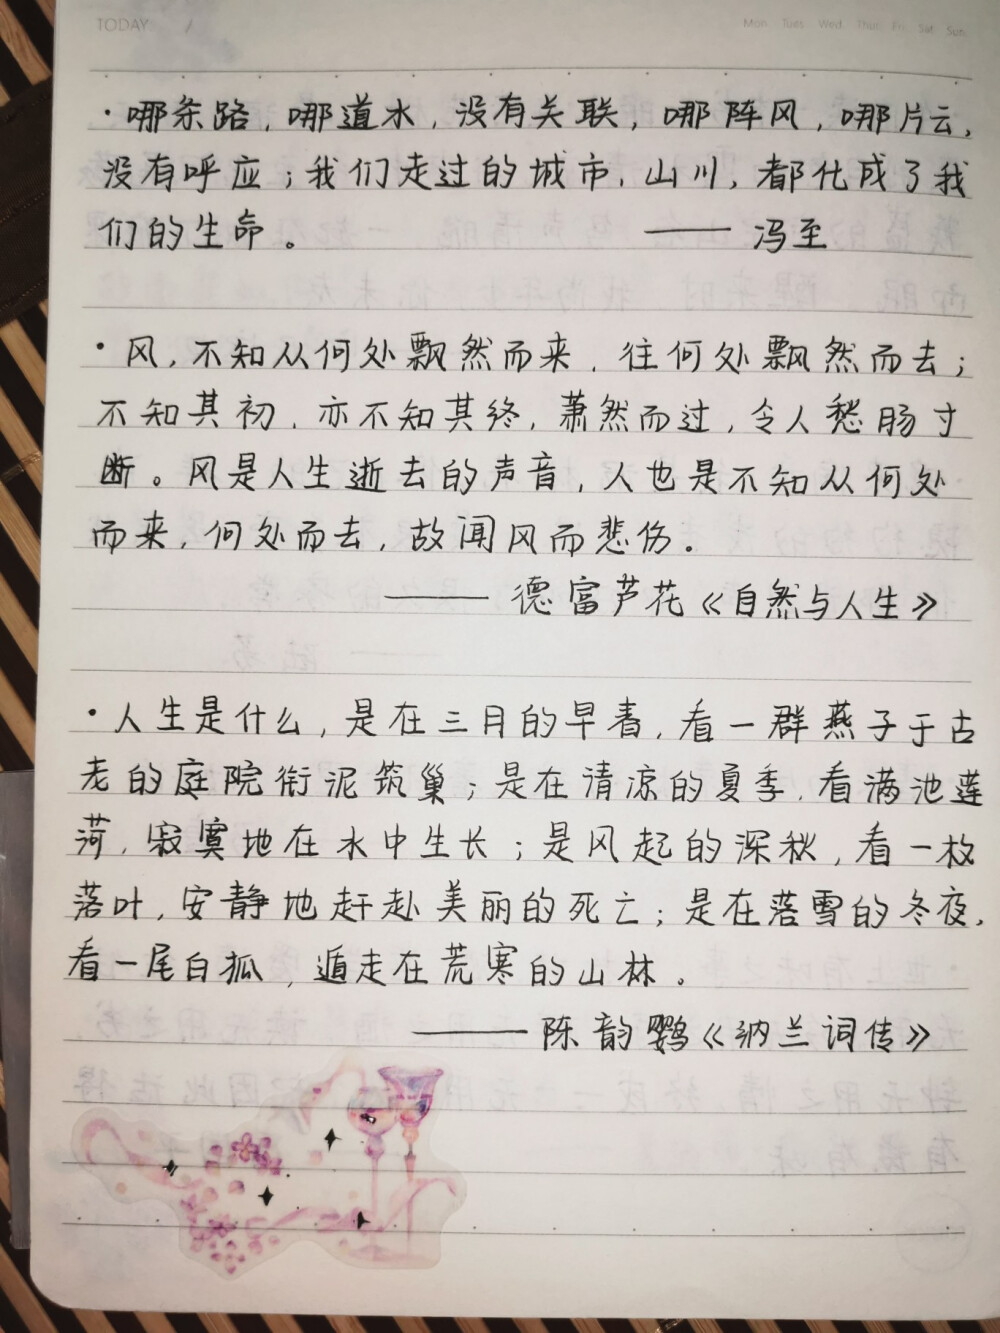 TODAY /
Mon. Tues. Wed. Thur. Fri. Sat. Sun.
·哪条路,哪道水,没有关联,哪阵风,哪片云,
没有呼应;我们走过的城市,山川,都化成了我
们的生命。 —— 冯至
·风,不知从何处飘然而来,往何处飘然而去;
不知其初,亦不知其终,萧然而过,令人愁肠寸
断。风是人生逝去的声音,人也是不知从何处
而来,何处而去,故闻风而悲伤。
—— 德富芦花《自然与人生》
·人生是什么,是在三月的早春,看一群燕子于古
老的庭院衔泥筑巢;是在清凉的夏季,看满池莲
荷,寂寞地在水中生长;是风起的深秋,看一枚
落叶,安静地赶赴美丽的死亡;是在落雪的冬夜,
看一尾白狐,遁走在荒寒的山林。
—— 陈韵鹦《纳兰词传》